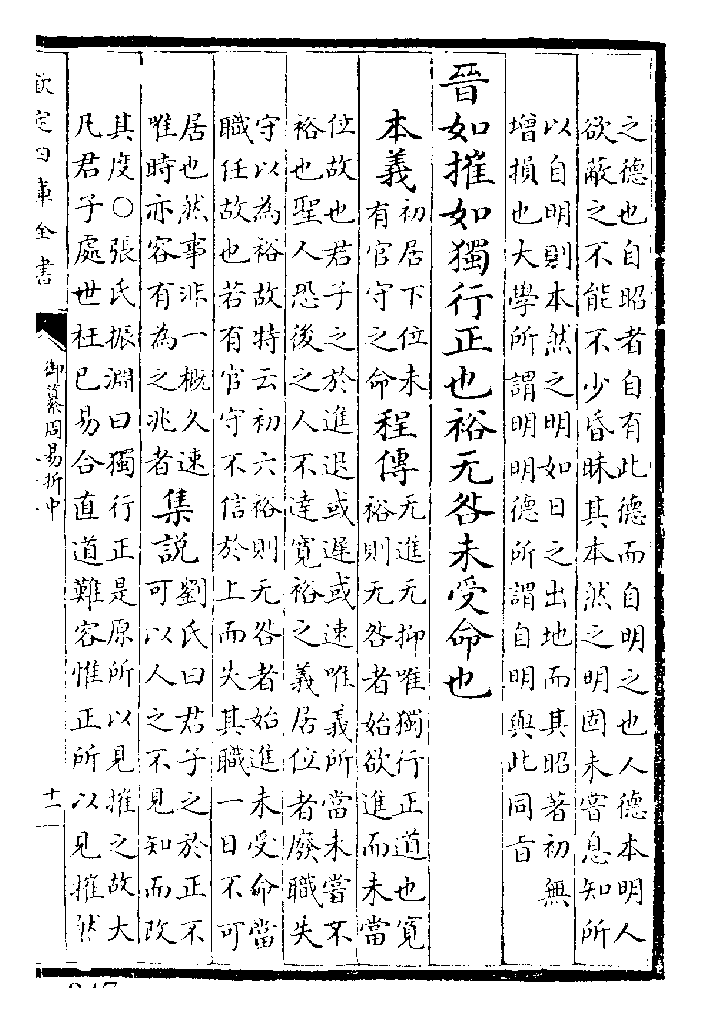 之德也自昭者自有此德而自明之也人德本明人
欲蔽之不能不少昏昧其本然之明固未嘗息知所
以自明則本然之明如日之出地而其昭著初無
增損也大學所謂明明德所謂自明與此同旨
晉如摧如獨行正也裕无咎未受命也
本義
初居下位未
有官守之命
程傳
无進无抑唯獨行正道也寛
裕則无咎者始欲進而未當
位故也君子之於進退或遲或速唯義所當未嘗不
裕也聖人恐後之人不達寛裕之義居位者廢職失
守以為裕故特云初六裕則无咎者始進未受命當
職任故也若有官守不信於上而失其職一日不可
居也然事非一概久速
唯時亦容有為之兆者
集説
劉氏曰君子之於正不
可以人之不見知而改
其度○張氏振淵曰獨行正是原所以見摧之故大
凡君子處世枉已易合直道難容惟正所以見摧然
欽定四庫全書
御纂周易折中
十一